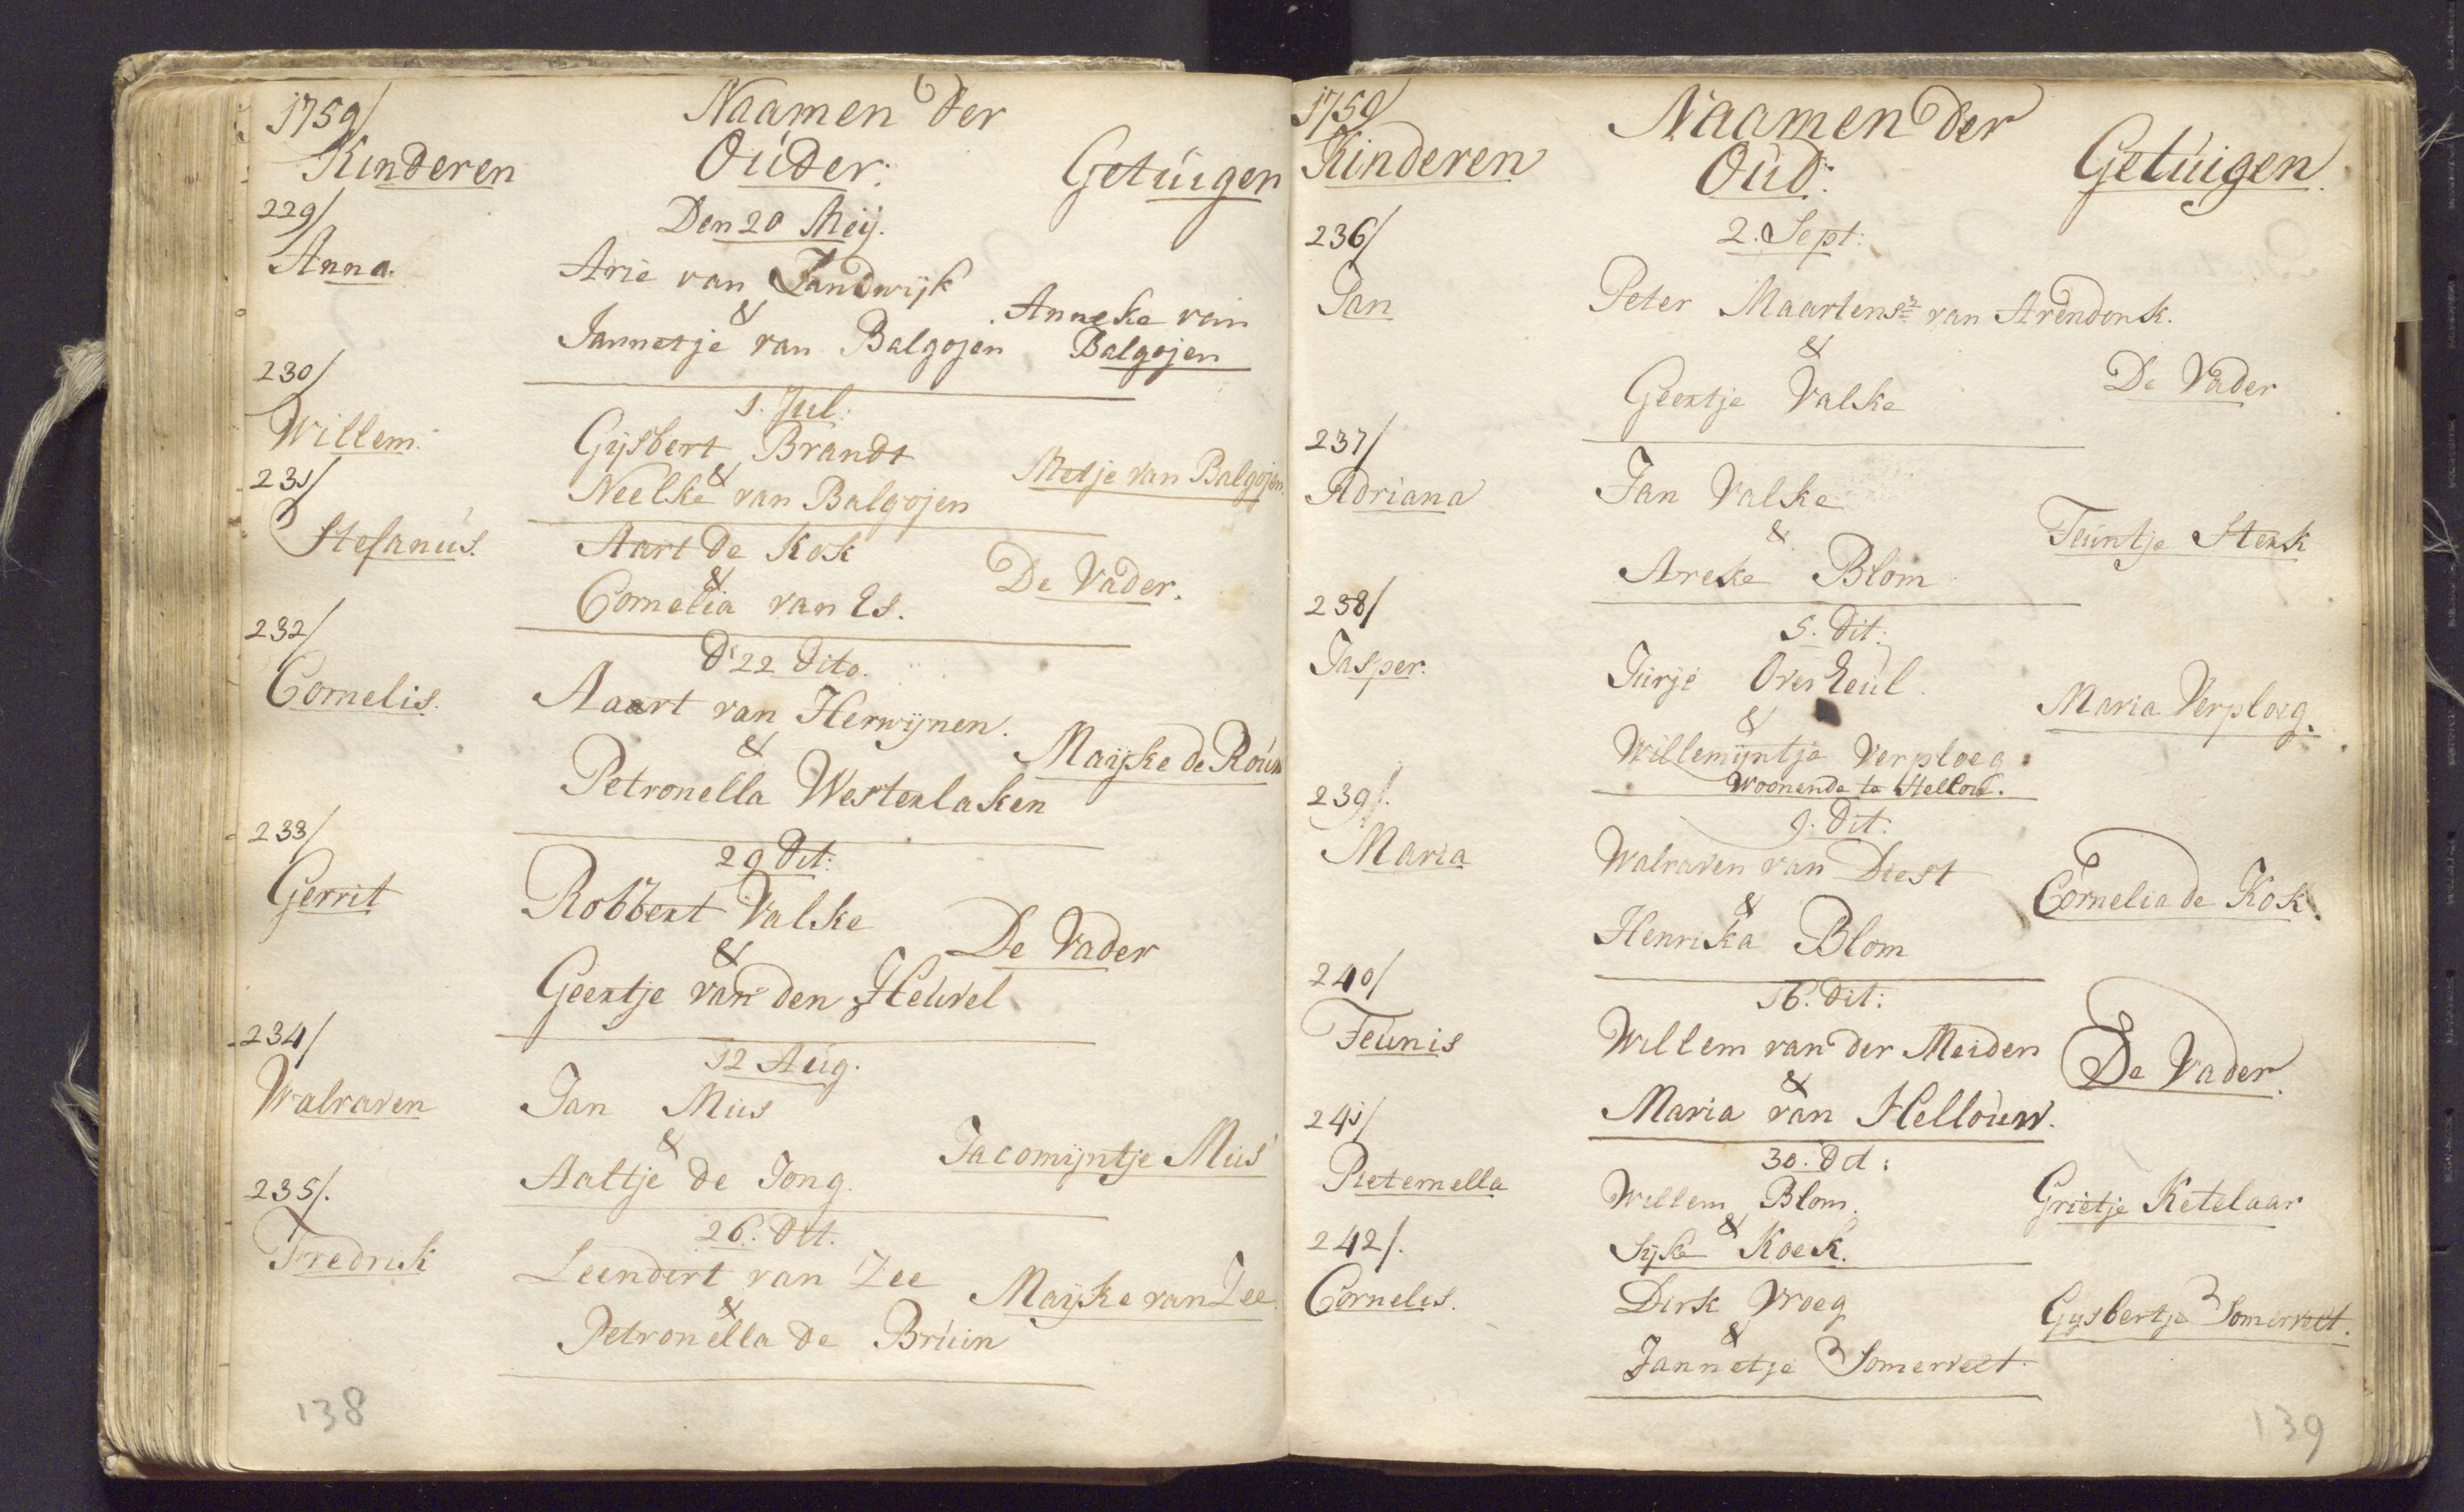 1759/
Naamen der
Kinderen Ouder: Getuigen
229/
Den 20 Meij.
Anna. Arie van Zandwijk
&
Anneke van
Jannetje van Balgojen Balgojen
230/
1. Jul:
Willem. Gijsbert Brandt
&
Metje van Balgojen.
231/
Neelke van Balgojen
Stefanus. Aart de Kok
&
De Vader.
Cornelia van Es.
232/
d' 22 dito.
Cornelis. Aaart van Herwijnen.
&
Maijke de Roun
Petronella Westerlaken
233/
29 dit:
Gerrit Robbert Valke
&
De Vader
Geertje van den Heuvel
234/
12 Aug.
Walraven Jan Mus
&
Jacomijntje Mus
Aaltje de Jong.
235/.
26. dit.
Fredrik Leendert van Zee
&
Maijke van Zee.
Petronella de Bruin
138
1759/
Naamen der
Kinderen Oud: Getuigen.
236/
2. Sept:
Jan Peter Maartensz van Arendonk.
&
De Vader
Geertje Valke
237/
Adriana Jan Valke
&
Teuntje Sterk
Areke Blom
238/
5. dit:
Jasper. Jurje Overeeul.
&
Maria Verploeg.
Willemijntje Verploeg.
Woonende te Hellou.
239/.
9. dit:
Maria Walraven van Diest
&
Cornelia de Kok.
Henrika Blom
240/
16. dit:
Teunis Willem van der Meiden
&
De Vader.
Maria van Hellouw.
241/
30. dit:
Pieternella Willem Blom.
&
Grietje Ketelaar
242/.
Sijke Koek.
Cornelis. Dirk Vroeg
&
Gijsbertje Somervelt.
Jannetje Somervelt.
139